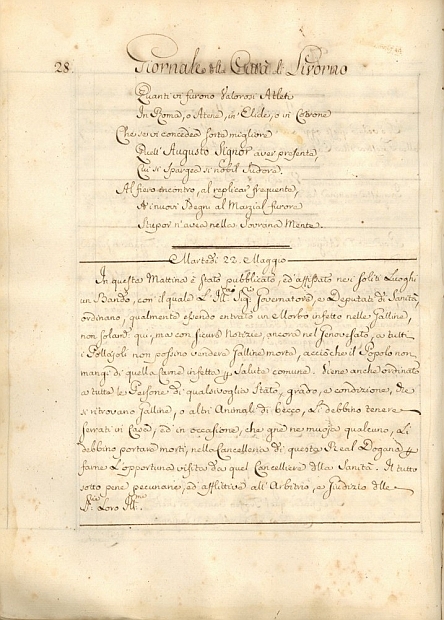 28.
Giornale della Città di Livorno
Quanti vi furono Valorosi Atleti
In Roma, o Atene, in Elide, o in Cotrone
Che se vi concedea sorte migliore
Quell' Augusto Signor aver presente,
Cui si spargea sì nobil Sudore.
Al fiero encontro, al replicar frequente,
A i nuovi Sdegni al Marzial furore
Stupor n'avea nella Sovrana Mente.
Martedì 22. Maggio
In questa Mattina è Stato pubblicato, ed' affissato nei soliti Luoghi
un Bando, con il quale L'Ill. Sig. Governatore, e Deputati di Sanità
ordinano, qualmente essendo entrato un Morbo infetto nelle Galline,
non solam. qui, ma con sicure Notizie, ancora nel Genovesato, a tutti
i Pollajoli non possino vendere Galline morte, acciò che il Popolo non
mangi di quella Carne infetta p Salute comune. Viene anche ordinato
a tutte le Persone di qualsivoglia Stato, grado, e condizione, che
si ritrovano Galline, o altri Animali di becco, Li debbino tenere
serrati in Casa, ed in occasione, che gne ne muoja qualcuno, Li
debbino portare morti, nella Cancelleria di questa Real Dogana p
farne L'opportuna visita da quel Cancelliere dlla Sanità. Il tutto
sotto pene pecuniarie, ed' afflittive all' Arbitrio, e Giudizio dlle
Loro Ill.